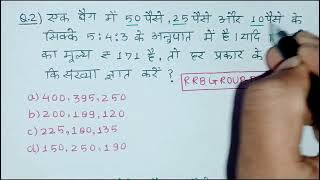 Q.2) एक बैग में 50 पैसे, 25 पैसे और 10 पैसे के
सिक्के 5:4:3 के अनुपात में है। यदि
का मूल्य ₹ 171 है, तो हर प्रकार के
कि संख्या ज्ञात करें ?
RRB GROUP
a) 400, 395, 250
b) 200, 199, 120
c) 225, 180, 135
d) 150, 250, 190